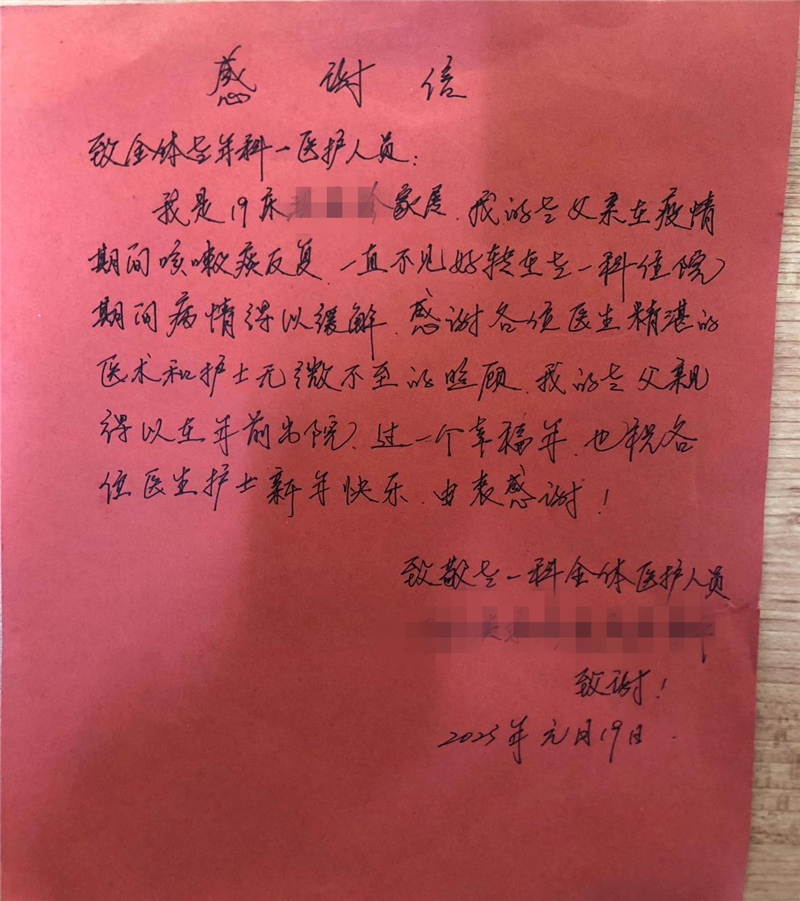 感谢信
致全体老年科一医护人员：
我是19床 家属.我的老父亲在疫情
期间咳嗽痰反复.一直不见好转在老一科住院
期间病情得以缓解.感谢各位医生精湛的
医术和护士无微不至的照顾.我的老父亲
得以在年前出院.过一个幸福年.也祝各
位医生护士新年快乐.由衷感谢！
致敬老一科全体医护人员
致谢！
2023年元月19日.